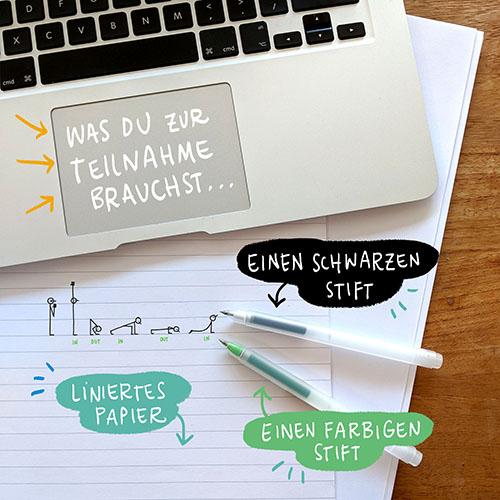 Z X C V B N M < , > . ? /
cmd cmd alt
WAS DU ZUR
TEILNAHME
BRAUCHST...
EINEN SCHWARZEN
STIFT
IN OUT IN OUT IN
LINIERTES
PAPIER
EINEN FARBIGEN
STIFT